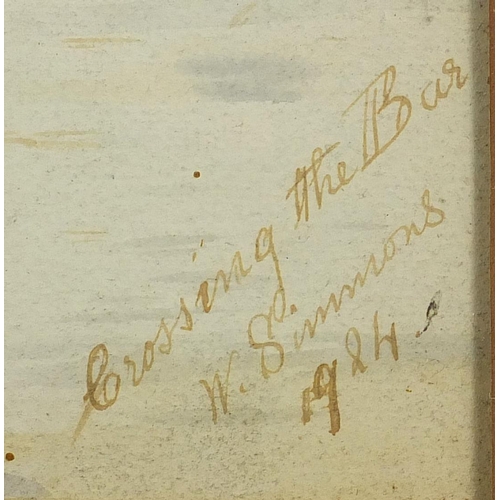 Crossing the Bar
W. Simmons
1924